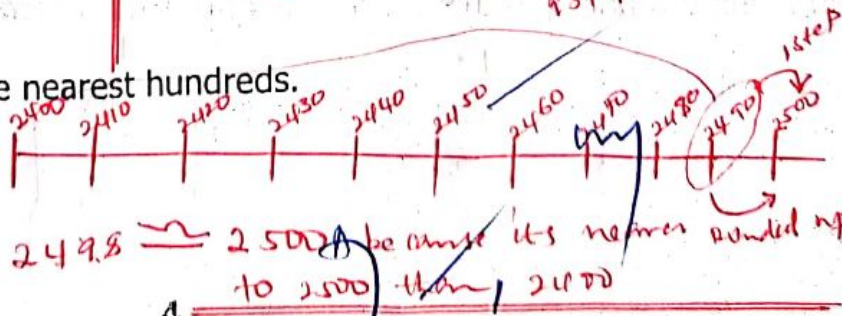 e nearest hundreds.
1 step
2400 2410 2420 2430 2440 2450 2460 2480 2490 2500
2498 ≃ 2500 because its nearer rounded up
to 2500 than 2400